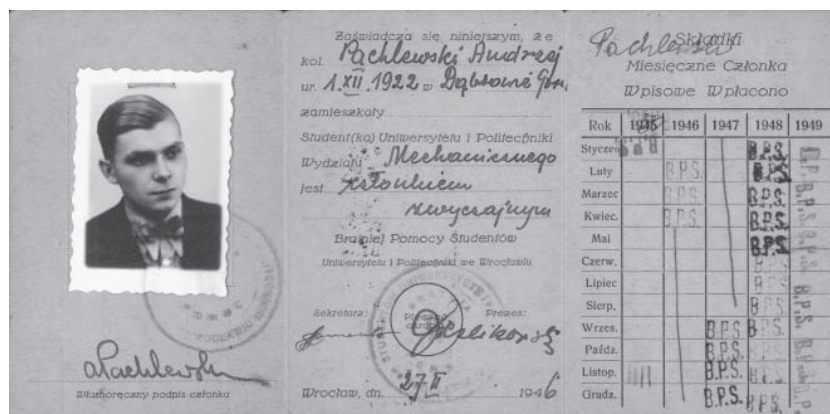 APachlewski
Własnoręczny podpis członka
Zaświadcza się niniejszym, że
kol. Pachlewski Andrzej
ur. 1.XII.1922 w Dąbrowie Gór.
zamieszkały
Student(ka) Uniwersytetu i Politechniki
Wydziału Mechanicznego
jest członkiem
zwyczajnym
Bratniej Pomocy Studentów
Uniwersytetu i Politechniki we Wrocławiu
Sekretarz: Prezes:
Wrocław, dn. 27 II 1946
Pachlewski
Składki
Miesięczne Członka
Wpisowe Wpłacono
Rok 1945 1946 1947 1948 1949
Styczeń B.P.S.
Luty B.P.S. B.P.S.
Marzec B.P.S. B.P.S.
Kwiec. B.P.S. B.P.S.
Maj B.P.S.
Czerw. B.P.S.
Lipiec B.P.S.
Sierp. B.P.S.
Wrzes. B.P.S B.P.S.
Paźdz. B.P.S. B.P.S.
Listop. B.P.S. B.P.S.
Grudz. B.P.S. B.P.S.